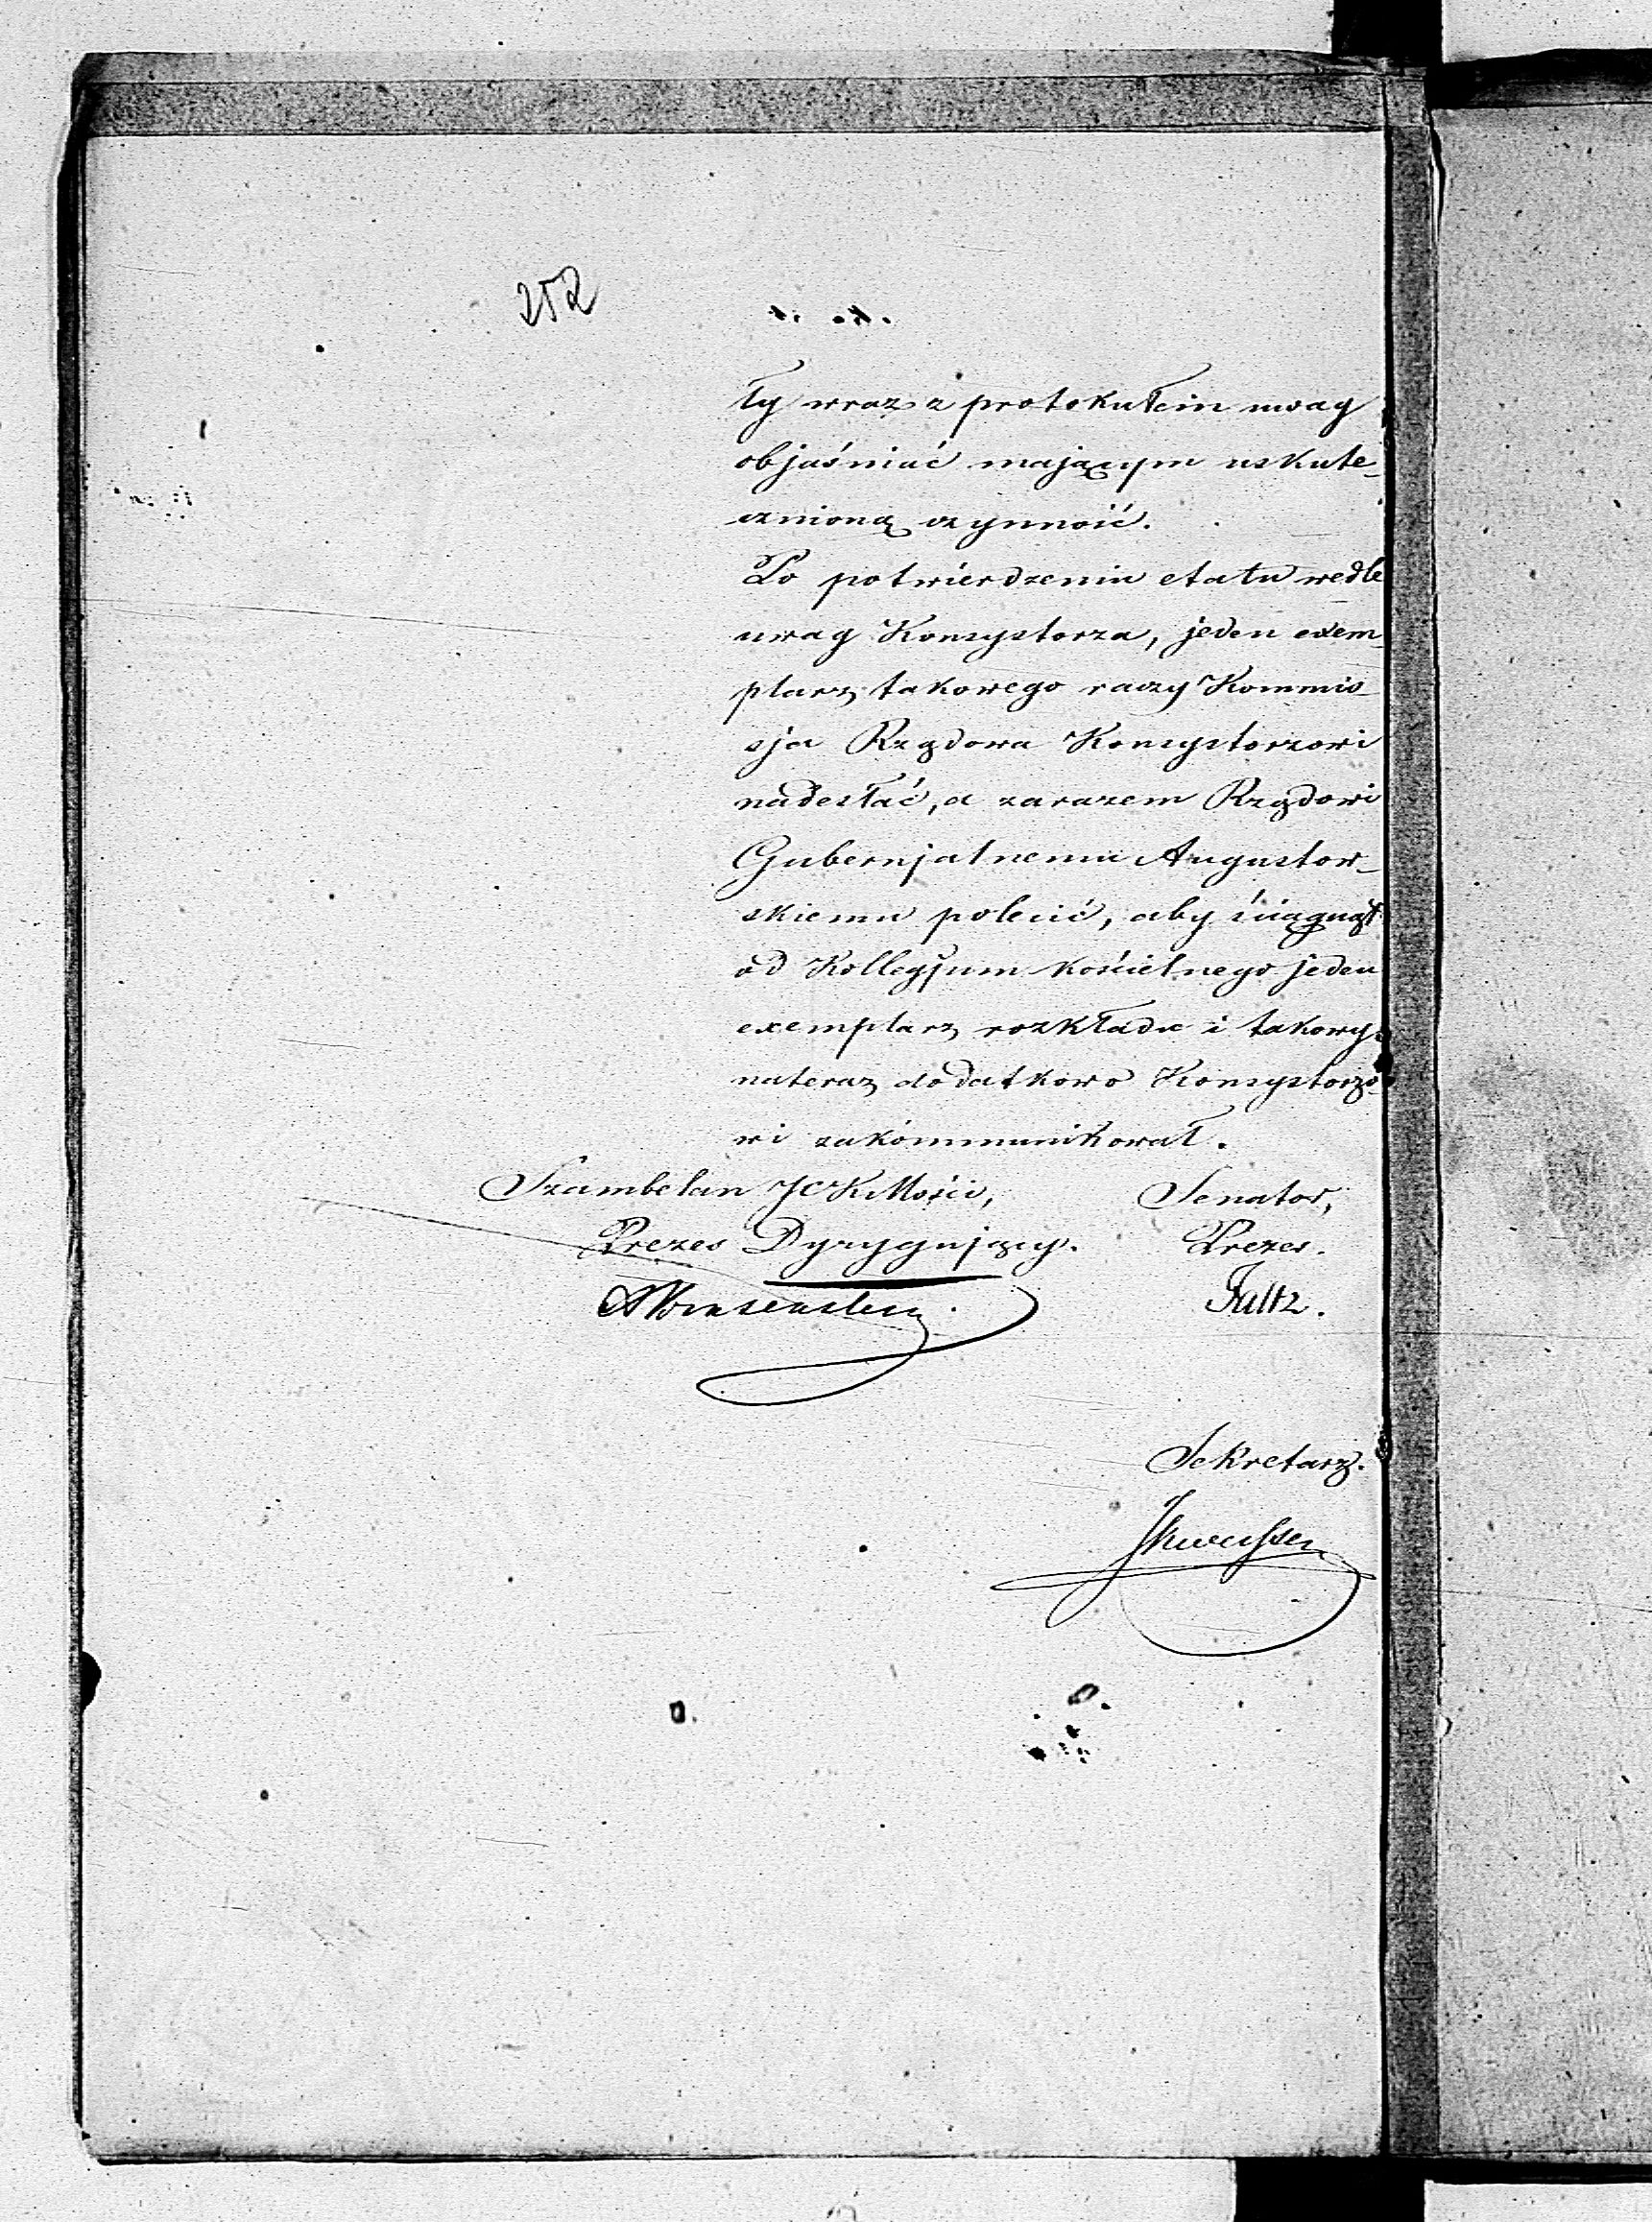 252
ły wraz z protokułem uwag
objaśniać mającym uskute-
cznioną czynność.
Po potwierdzeniu etatu wedle
uwag Konsystorza, jeden exem-
plarz takowego raczy Kommis-
sja Rządowa Konsystorzowi
nadesłać, a zarazem Rządowi
Gubernjalnemu Augustow-
skiemu polecić, aby ściągnął
od Kollegjum kościelnego jeden
exemplarz rozkładu i takowy
nateraz dodatkowo Konsystorzo-
wi zakommunikował.
Szambelan JCKMości, Senator,
Prezes Dyrygujący. Prezes.
Faltz.
Sekretarz.